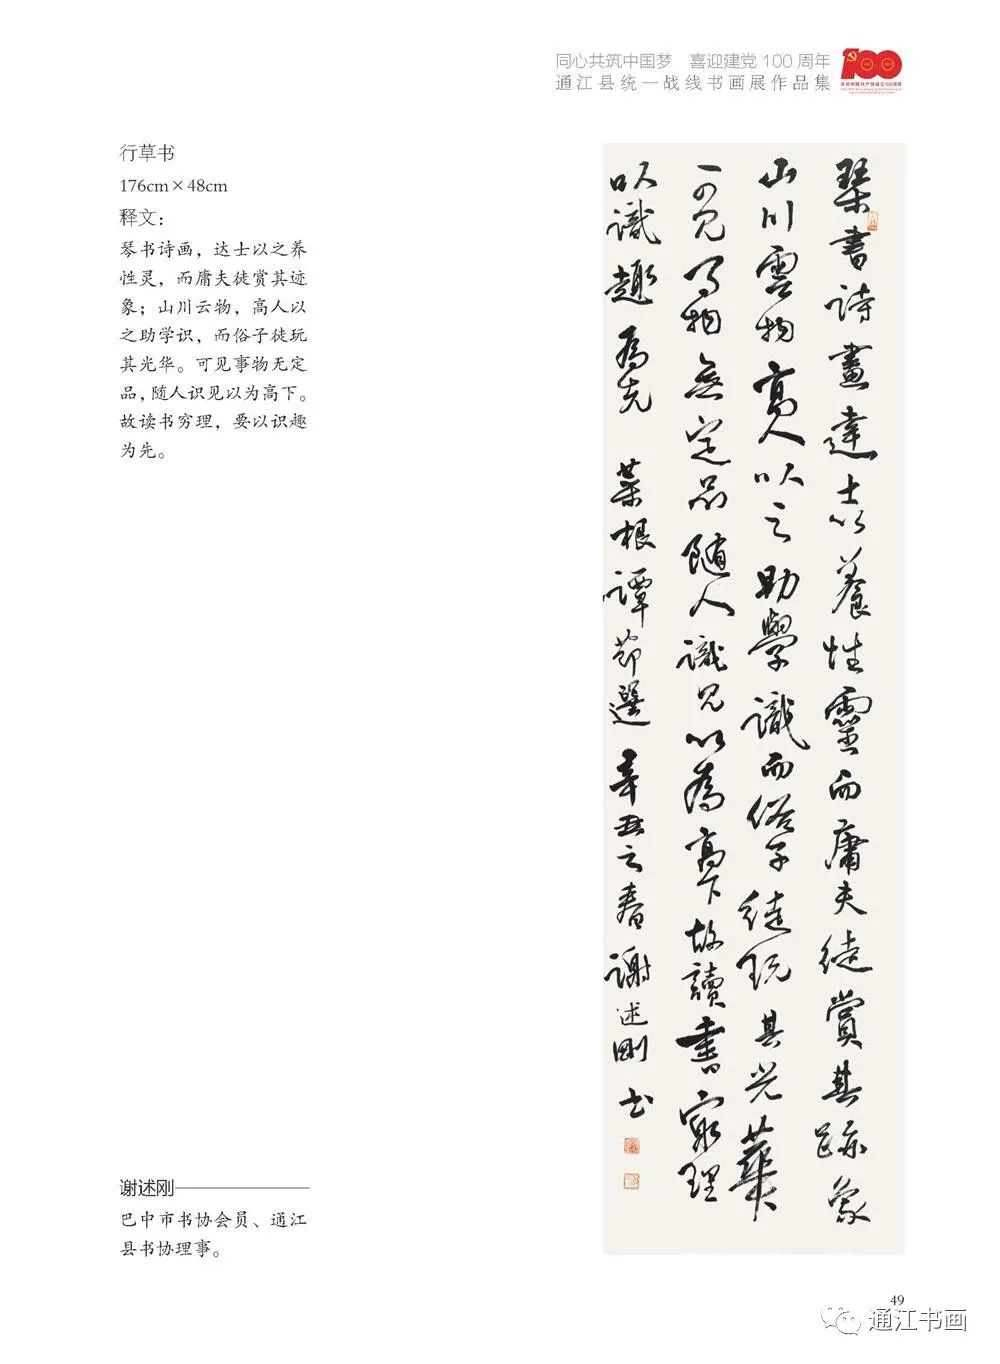 同心共筑中国梦　喜迎建党 100 周年
通江县统一战线书画展作品集
100
庆祝中国共产党成立100周年
The 100th Anniversary of the Founding of
The Communist Party of China
行草书
176cm×48cm
释文：
琴书诗画，达士以之养
性灵，而庸夫徒赏其迹
象；山川云物，高人以
之助学识，而俗子徒玩
其光华。可见事物无定
品，随人识见以为高下。
故读书穷理，要以识趣
为先。
琴書詩畫達士以養性靈而庸夫徒賞其跡象
山川雲物高人以之助學識而俗子徒玩其光華
可見事物無定品隨人識見以為高下故讀書窮理
以識趣為先 菜根譚節選 辛丑之春謝述剛書
谢述刚
巴中市书协会员、通江
县书协理事。
49
通江书画